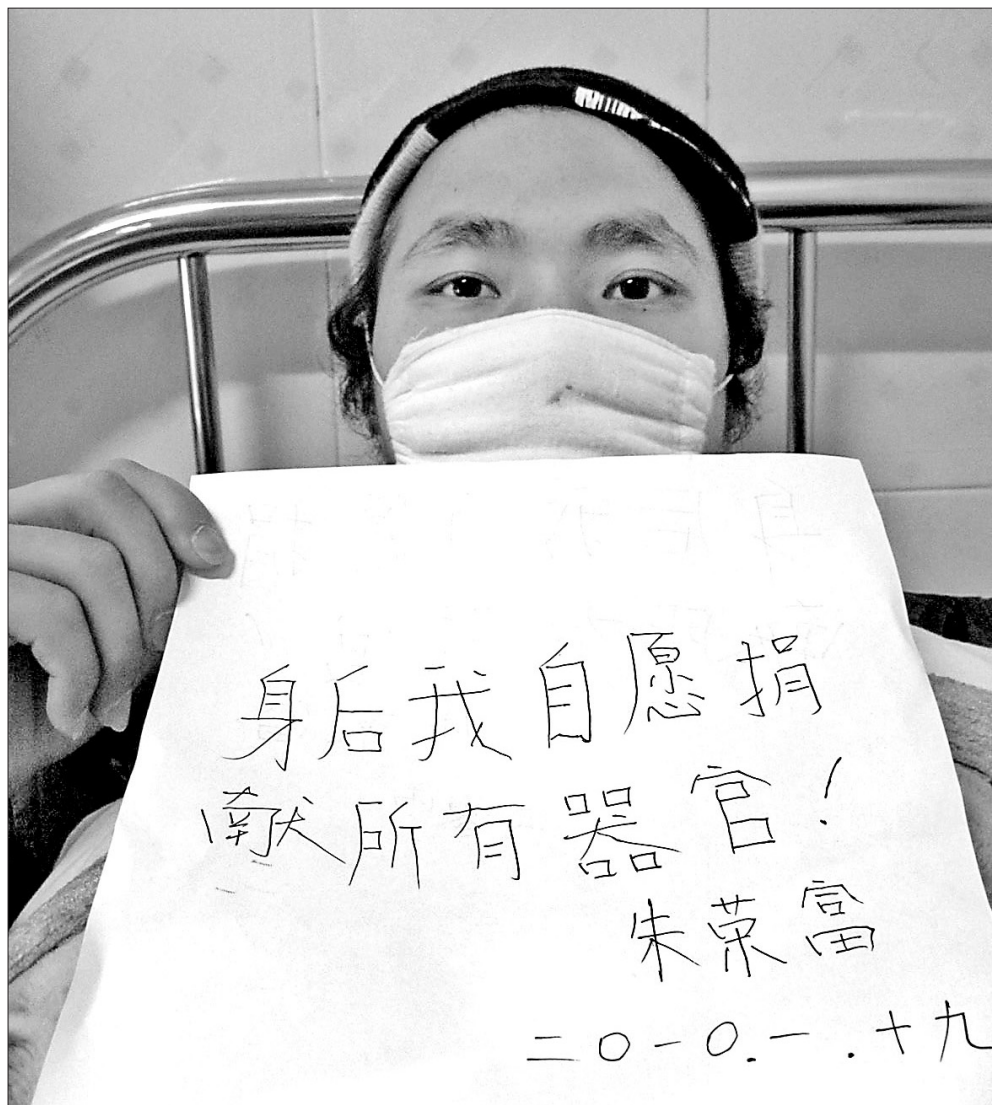 身后我自愿捐
献所有器官!
朱荣富
二〇一〇.一.十九